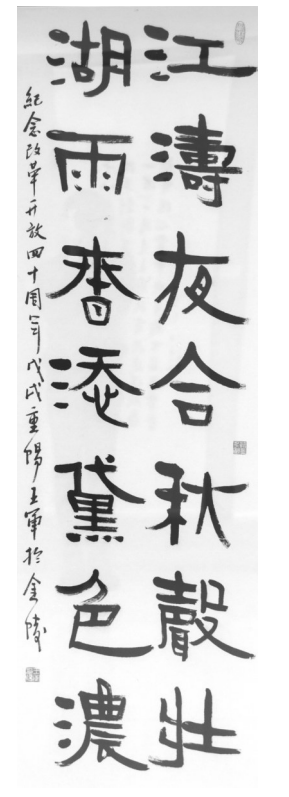 江濤夜合秋聲壯
湖雨春添黛色濃
紀念改革开放四十周年戊戌重陽王軍於金陵